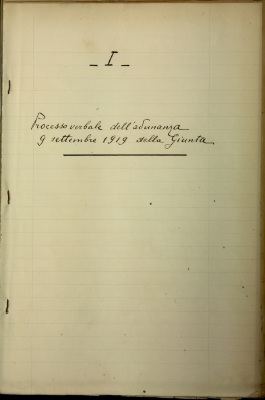 _ I _
Processo verbale dell'adunanza
9 settembre 1919 della Giunta